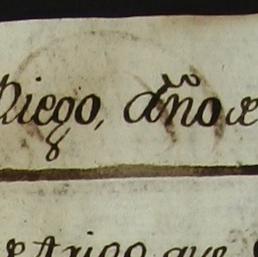 Diego, año de
de trigo que